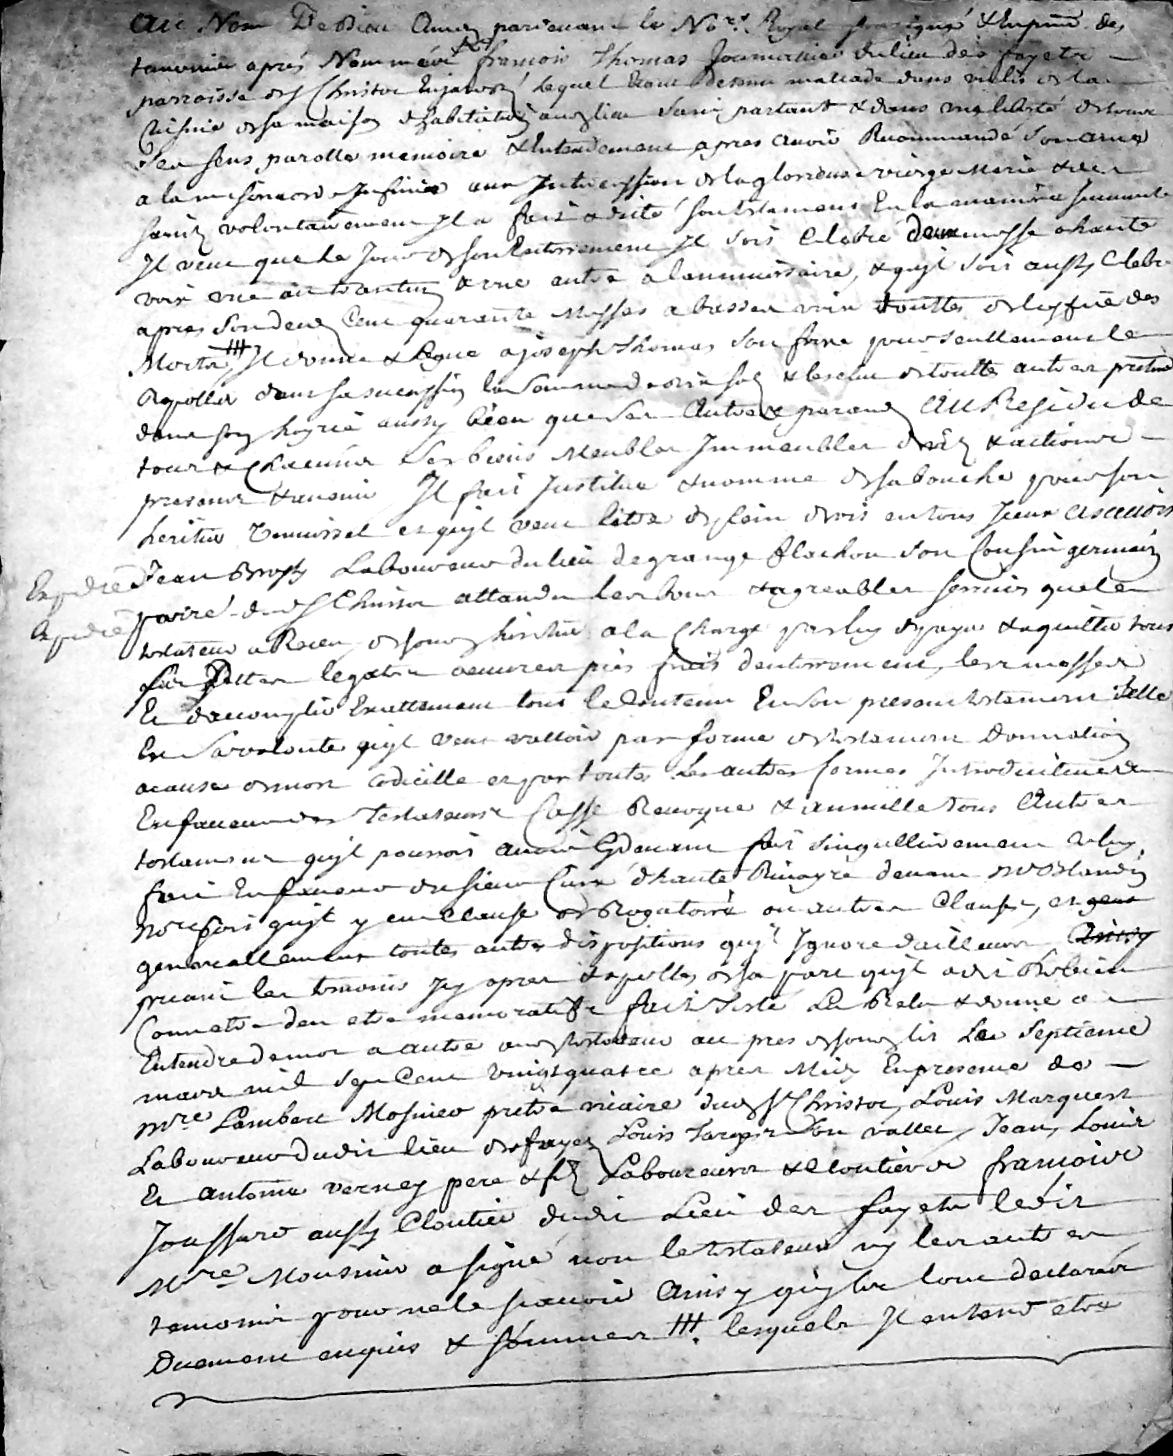 Au Nom De Dieu Amen pardevant le No.re Royal soussigné & En presence des
temoins aprés Nommés fut françois Thomas Journallier du lieu des fayets
parroisse de St Christoe En jarest lequel Etant detenu mallade dans un lit de la
Cuisine de sa maison d'habitation audit lieu sain partant & dans une liberté de tous
ses sens parolle memoire & Entendement apres avoir Recommandé son ame
a la misericorde Infinie aux Intercession de la glorieuse vierge Marie & des
saints volontairement Il a fait & dicté son testament En la maniere suivante
Il veut que le Jour de son Enterrement Il soit Celebré deux messe a haute
voix une a la trantein & une autre a lanniversaire, & qu'il soit aussy Celebré
apres son decez Cent quarante Messes a basse voix touttes de loffice des
Morts ### Il donne & Legue a joseph Thomas son frere pour seullement le
Apeller dans sa succession la somme de cinq sols & lesclut de toutte autres pretentions
dans son hoyrie aussy bien que ses Autres parans Au Residu de
tous & Chacuns ses biens Meubles Immeubles droits & actions
presents & avenir Il fait Institue & nomme de sa bouche pour son
heritier universel et qu'il veut lestre de plein droit en tous Jceux ascavoir
Expedié Jean Brossy Laboureur du lieu de grange flachon son Cousin germain
Expedié paroisse dudt St Christoe attandu les bons & agreables services que le
testateur a Receu de sondt heritier a la Charge par luy de payer & aquitter tous
ses dettes legats oeuvres pies frais denterrement, les messes
Et d'accomplir Exactement tout le Contenu En son present testament Telle
Est sa volonté qu'il veut valloir par forme de testament Donnation
acause de mort Codicille et par toutes Les autres formes Introduittes
En faveur des Testateurs Casse Revoque & annulle tous Autres
testamens qu'il pourroit avoir Cydevant fait singullierement celuy
fait En faveur du sieur Curé d'haute Rivoyre devant Me Blandin
No.re soit qu'il y eut Clause derogatoire ou autres Clauses, et
generallement toutes autres dispositions qu'il Ignore dailleurs
priant les temoins Jcy apres & apellés de sa part qu'il a dit bien
Connetre den etre memoratifs fait Testé Leu Releu & donné a
Entendre de mot a autre audt testateur au pres de sondt lit Le Septieme
mars mil sept Cent vingt quatre apres Midy En presence de
M.re Lambert Mosnier pretre vicaire dudt St Christoe, Louis Marquest
Laboureur dudit lieu des fayets Louis son vallet, Jean, Louis
Et antoine verney pere & fils Laboureurs & Cloutiers françois
Joussard aussy Cloutier dudit Lieu des fayets ledit
M.re Mousnier a signé non le testateur ny les autres
temoins pour ne le scavoir Ainsy qu'ils lont declarés
Duement enquis & sommés ### lesquels Il entend etre